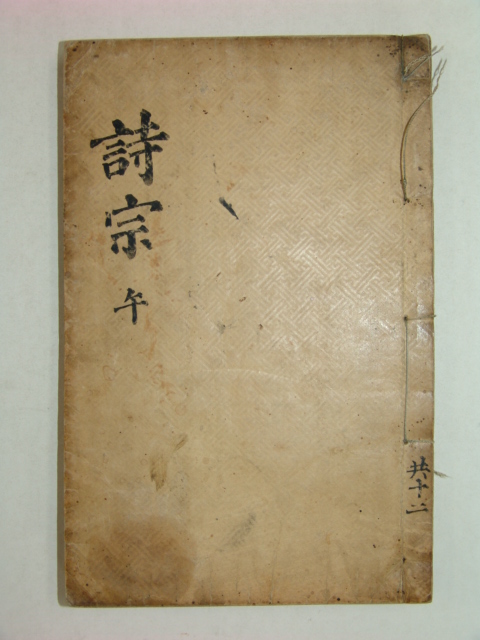 詩宗 午
共十二